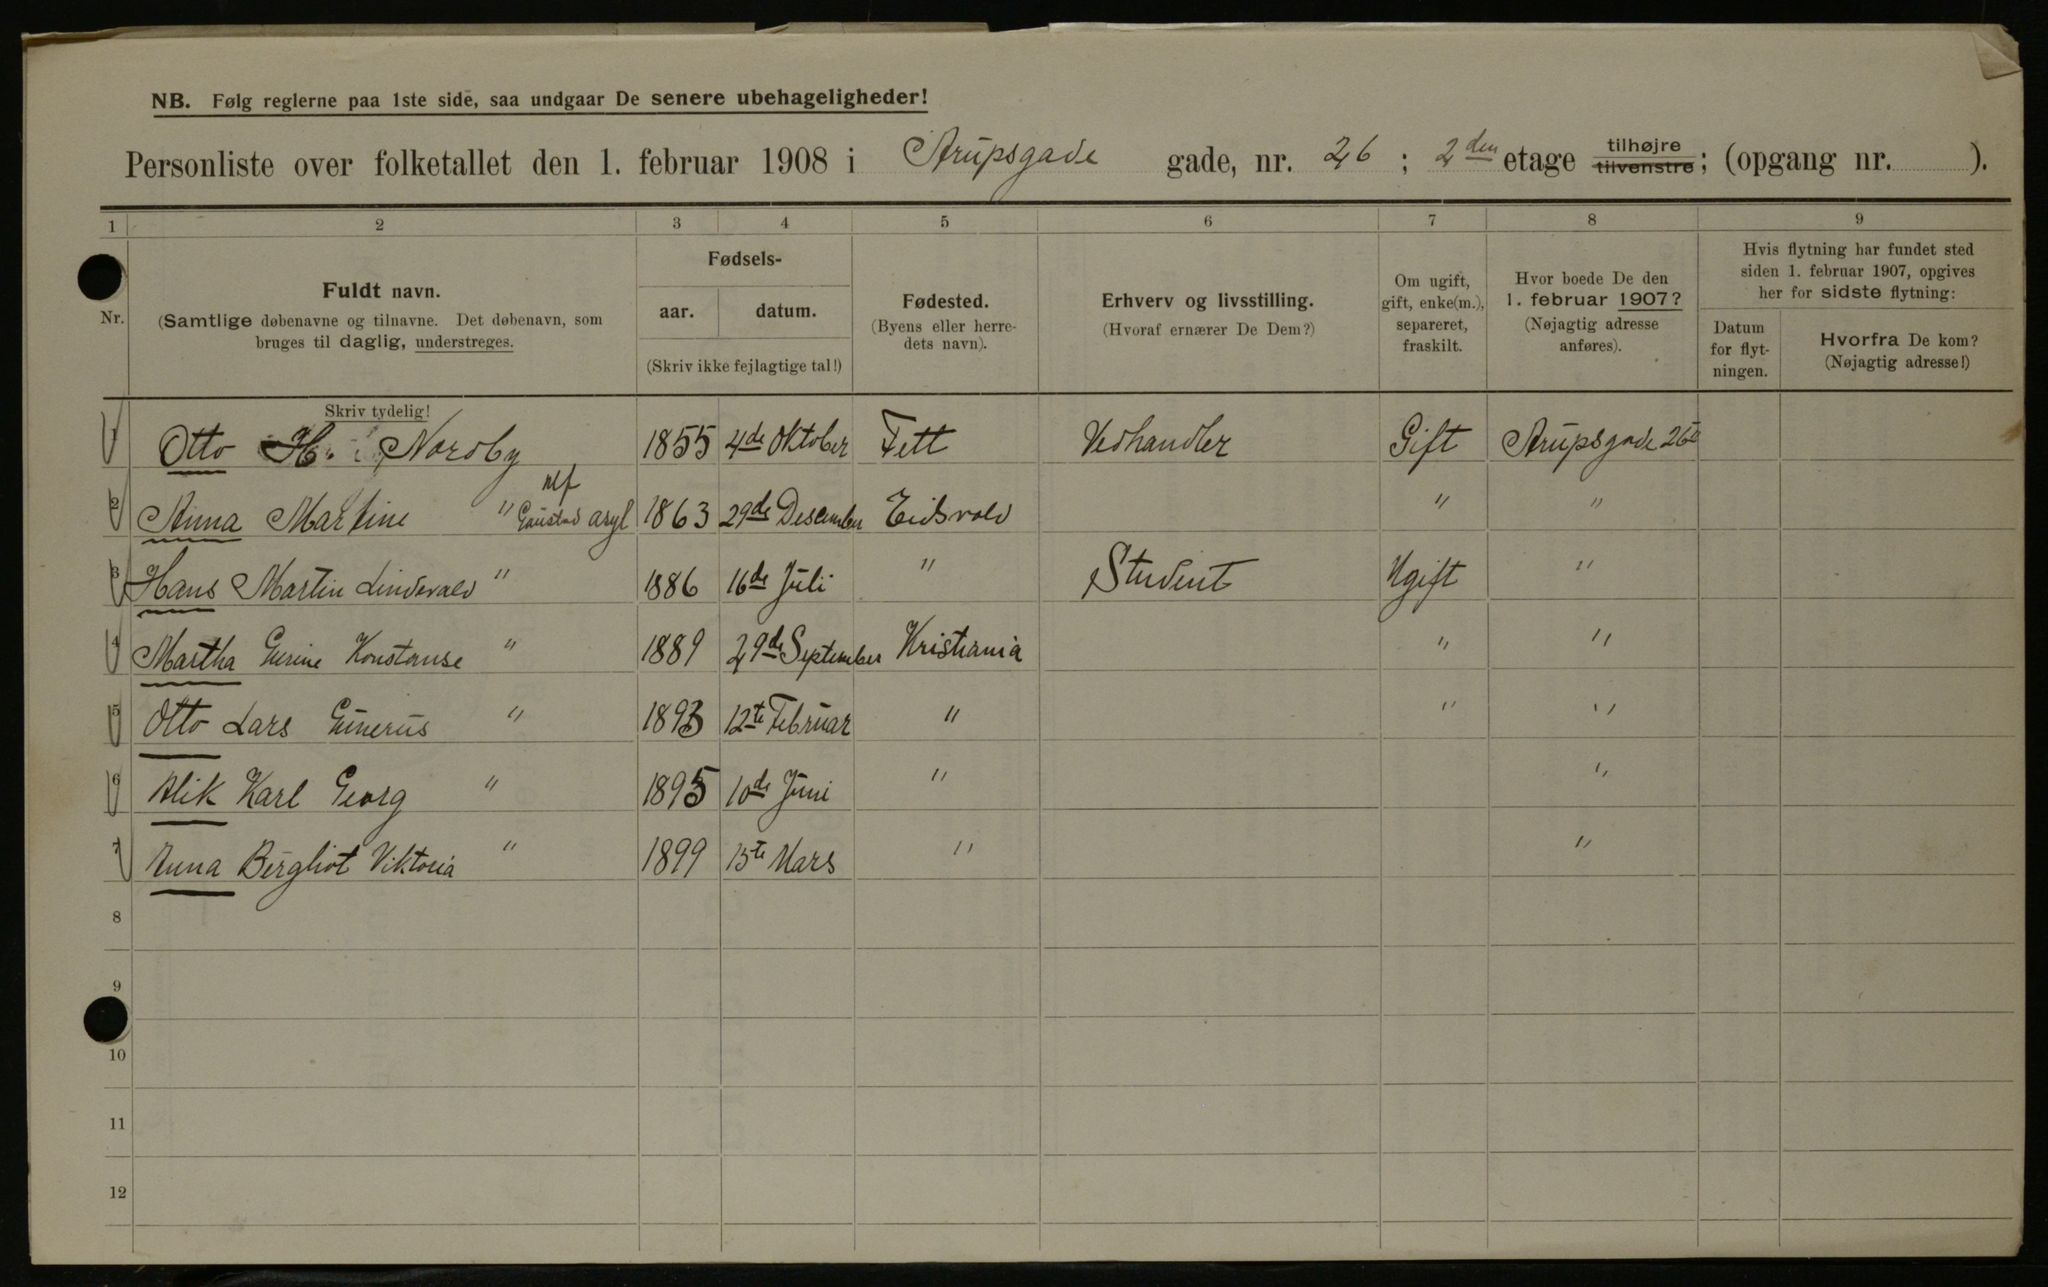 NB. Følg reglerne paa 1ste side, saa undgaar De senere ubehageligheder!
Personliste over folketallet den 1. februar 1908 i Arupsgade gade, nr. 26 ; 2den etage tilhøjre tilvenstre; (opgang nr. ).
1 2 3 4 5 6 7 8 9
Nr.
Fuldt navn.
(Samtlige døbenavne og tilnavne. Det døbenavn, som
bruges til daglig, understreges.
Fødsels-
aar. datum.
(Skriv ikke fejlagtige tal!)
Fødested.
(Byens eller herre-
dets navn).
Erhverv og livsstilling.
(Hvoraf ernærer De Dem?)
Om ugift,
gift, enke(m.),
separeret,
fraskilt.
Hvor boede De den
1. februar 1907?
(Nøjagtig adresse
anføres).
Hvis flytning har fundet sted
siden 1. februar 1907, opgives
her for sidste flytning:
Datum
for flyt-
ningen.
Hvorfra De kom?
(Nøjagtig adresse!)
Skriv tydelig!
1 Otto H. Nordby 1855 4de Oktober Fett Vedhandler Gift Arupsgade 26
2 Anna Martine " Gaustad asyl 1863 29de Desember Eidsvold " "
3 Hans Martin Lindevald " 1886 16de Juli " Student Ugift "
4 Martha Konstanse " 1889 29de September Kristiania " "
5 Otto Lars Gunerus " 1893 12te Februar " " "
6 Alik Karl Georg " 1895 10de Juni " "
7 Anna Bergliot Viktoria " 1899 15te Mars " "
8
9
10
11
12